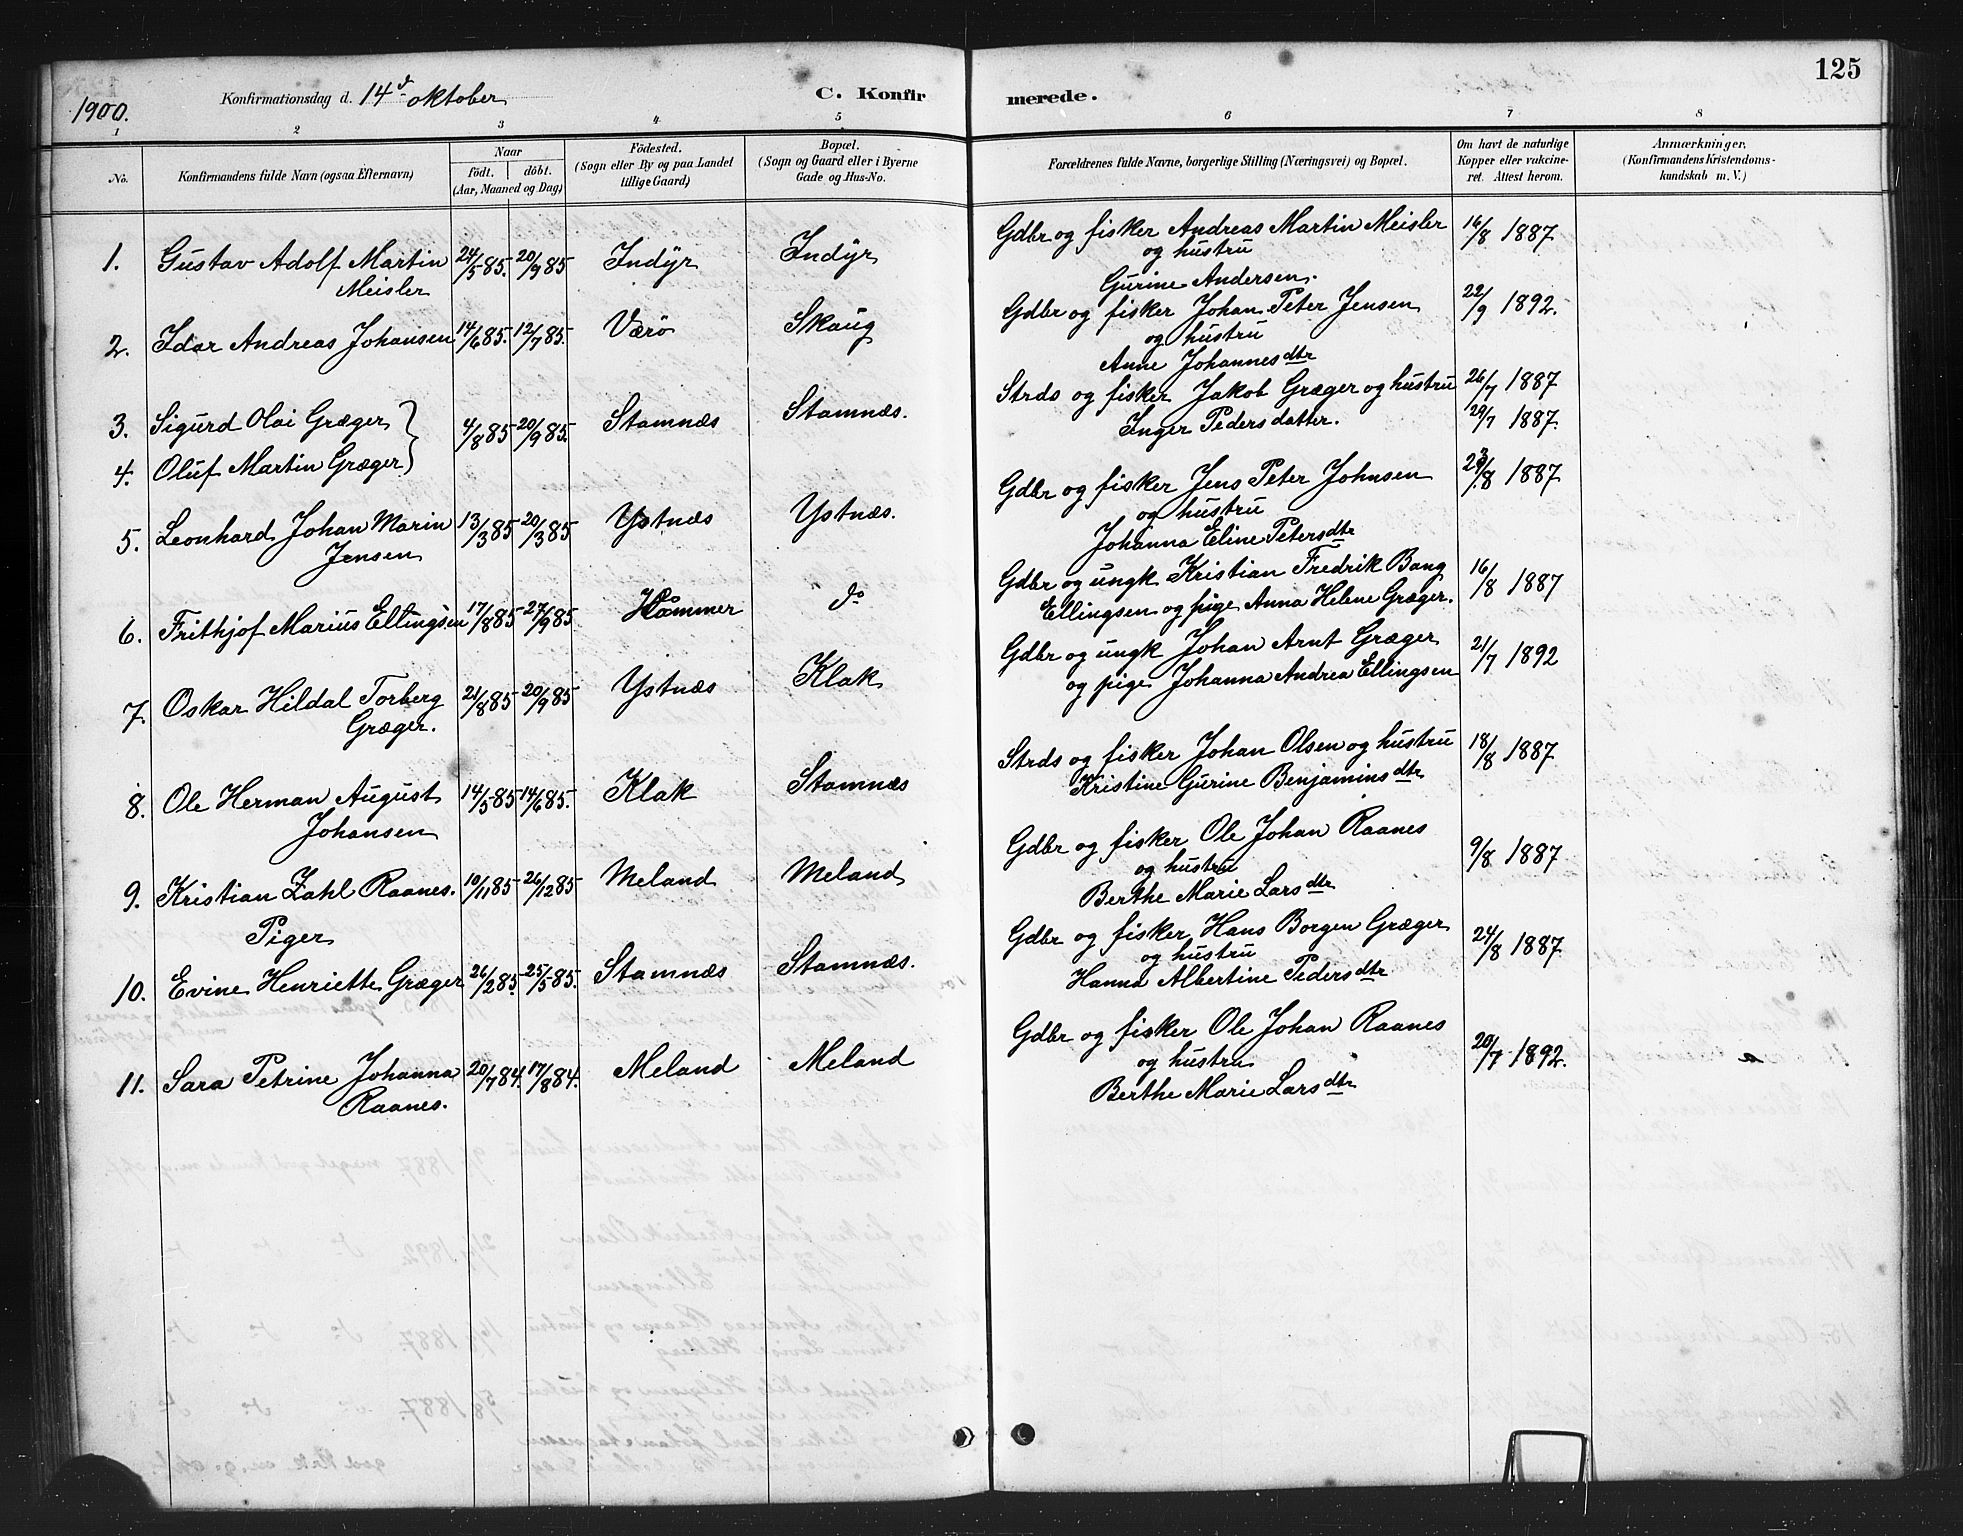 125
1900. Konfirmationsdag d. 14d oktober C. Konfirmerede.
1 2 3 4 5 6 7 8
No.
Konfirmandens fulde Navn (ogsaa Efternavn)
Naar
födt. döbt.
(Aar, Maaned og Dag)
Födested.
(Sogn eller By og paa Landet
tillige Gaard)
Bopæl.
(Sogn og Gaard eller i Byerne
Gade og Hus-No.
Forældrenes fulde Navne, borgerlige Stilling (Næringsvei) og Bopæl.
Om havt de naturlige
Kopper eller vakcine-
ret. Attest herom.
Anmærkninger,
(Konfirmandens Kristendoms-
kundskab m. V.)
1. Gustav Adolf Martin 24/5 85. 20/9 85 Indÿr Indÿr Gdbr og fisker Andreas Martin Meisler 16/8 1887
Meisler og hustru
Gurine Andersen.
2. Idar Andreas Johansen 14/6 85. 12/7 85. Værö Skaug Gdbr og fisker Johan Peter Jensen 22/9 1892.
og hustru
Anne Johannesdtr
3. Sigurd Olai Græger } 4/8 85 20/9 85. Stamnæs Stamnæs. Strds og fisker Jakob Græger og hustru 26/7 1887
4. Oluf Martin Græger Inger Pedersdatter. 29/7 1887.
5. Leonhard Johan Marin 13/3 85 20/3 85 Ystnæs Ystnæs. Gdbr og fisker Jens Peter Johnsen 23/8 1887
Jensen og hustru
Johanna Eline Petersdtr
6. Frithjof Marius Ellingsen 17/8 85 27/9 85 Hammer do Gdbr og ungk Kristian Fredrik Bang 16/8 1887
Ellingsen og pige Anna Helene Græger.
7. Oskar Hildal Torberg 21/8 85 20/9 85 Ystnæs Klak Gdbr og ungk Johan Arnt Græger 21/7 1892
Græger. og pige Johanna Andrea Ellingsen
8. Ole Herman August 14/5 85 14/6 85. Klak Stamnæs Strds og fisker Johan Olsen og hustru 18/8 1887
Johansen Kristine Gurine Benjaminsdtr
9. Kristian Zahl Raanes. 10/11 85 26/12 85 Meland Meland Gdbr og fisker Ole Johan Raanes 9/8 1887
og hustru
Berthe Marie Larsdtr
Piger
10. Evine Henriette Græger 26/2 85. 25/5 85. Stamnæs Stamnæs. Gdbr og fisker Hans Borgen Græger 24/8 1887
og hustru
Hanna Albertine Pedersdtr
11. Sara Petrine Johanna 20/7 84. 17/8 84. Meland Meland Gdbr og fisker Ole Johan Raanes 20/7 1892.
Raanes. og hustru
Berthe Marie Larsdtr